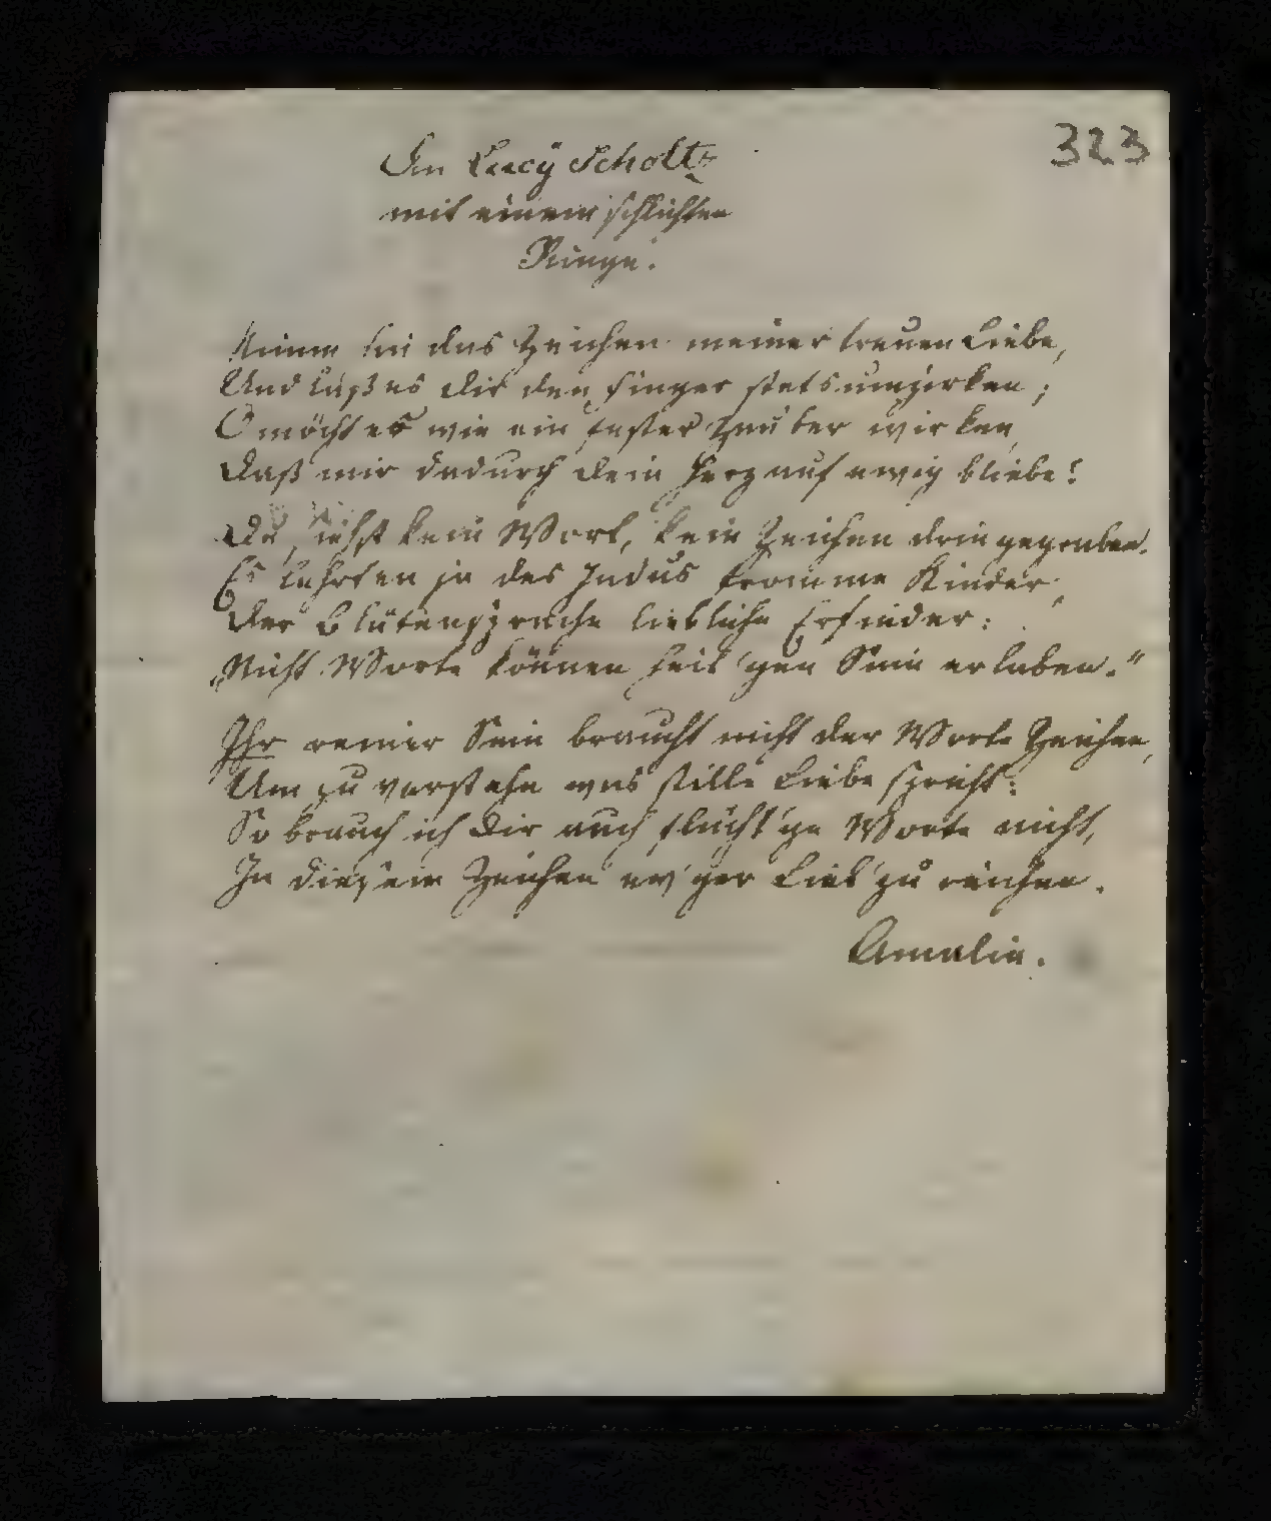 323
An Lucÿ Scholtz
mit einem schlichten
Ringe.
Nimm hin das Zeichen meiner treuen Liebe,
Und laß es dir den Finger stets umzirken;
O möcht es wie ein fester Zauber wirken,
Daß mir dadurch dein Herz auf ewig bliebe!
Du siehst kein Wort, kein Zeichen drein gegraben.
Es lehrten ja des Indus fromme Kinder,
Der Blütensprache liebliche Erfinder:
„Nicht Worte können heil'gen Sinn erlaben."
Ihr reiner Sinn braucht nicht der Worte Zeichen,
Um zu verstehn was stille Liebe spricht:
So brauch ich dir auch flücht'ge Worte nicht,
In diesem Zeichen ew'ger Lieb' zu reichen.
Amalie.